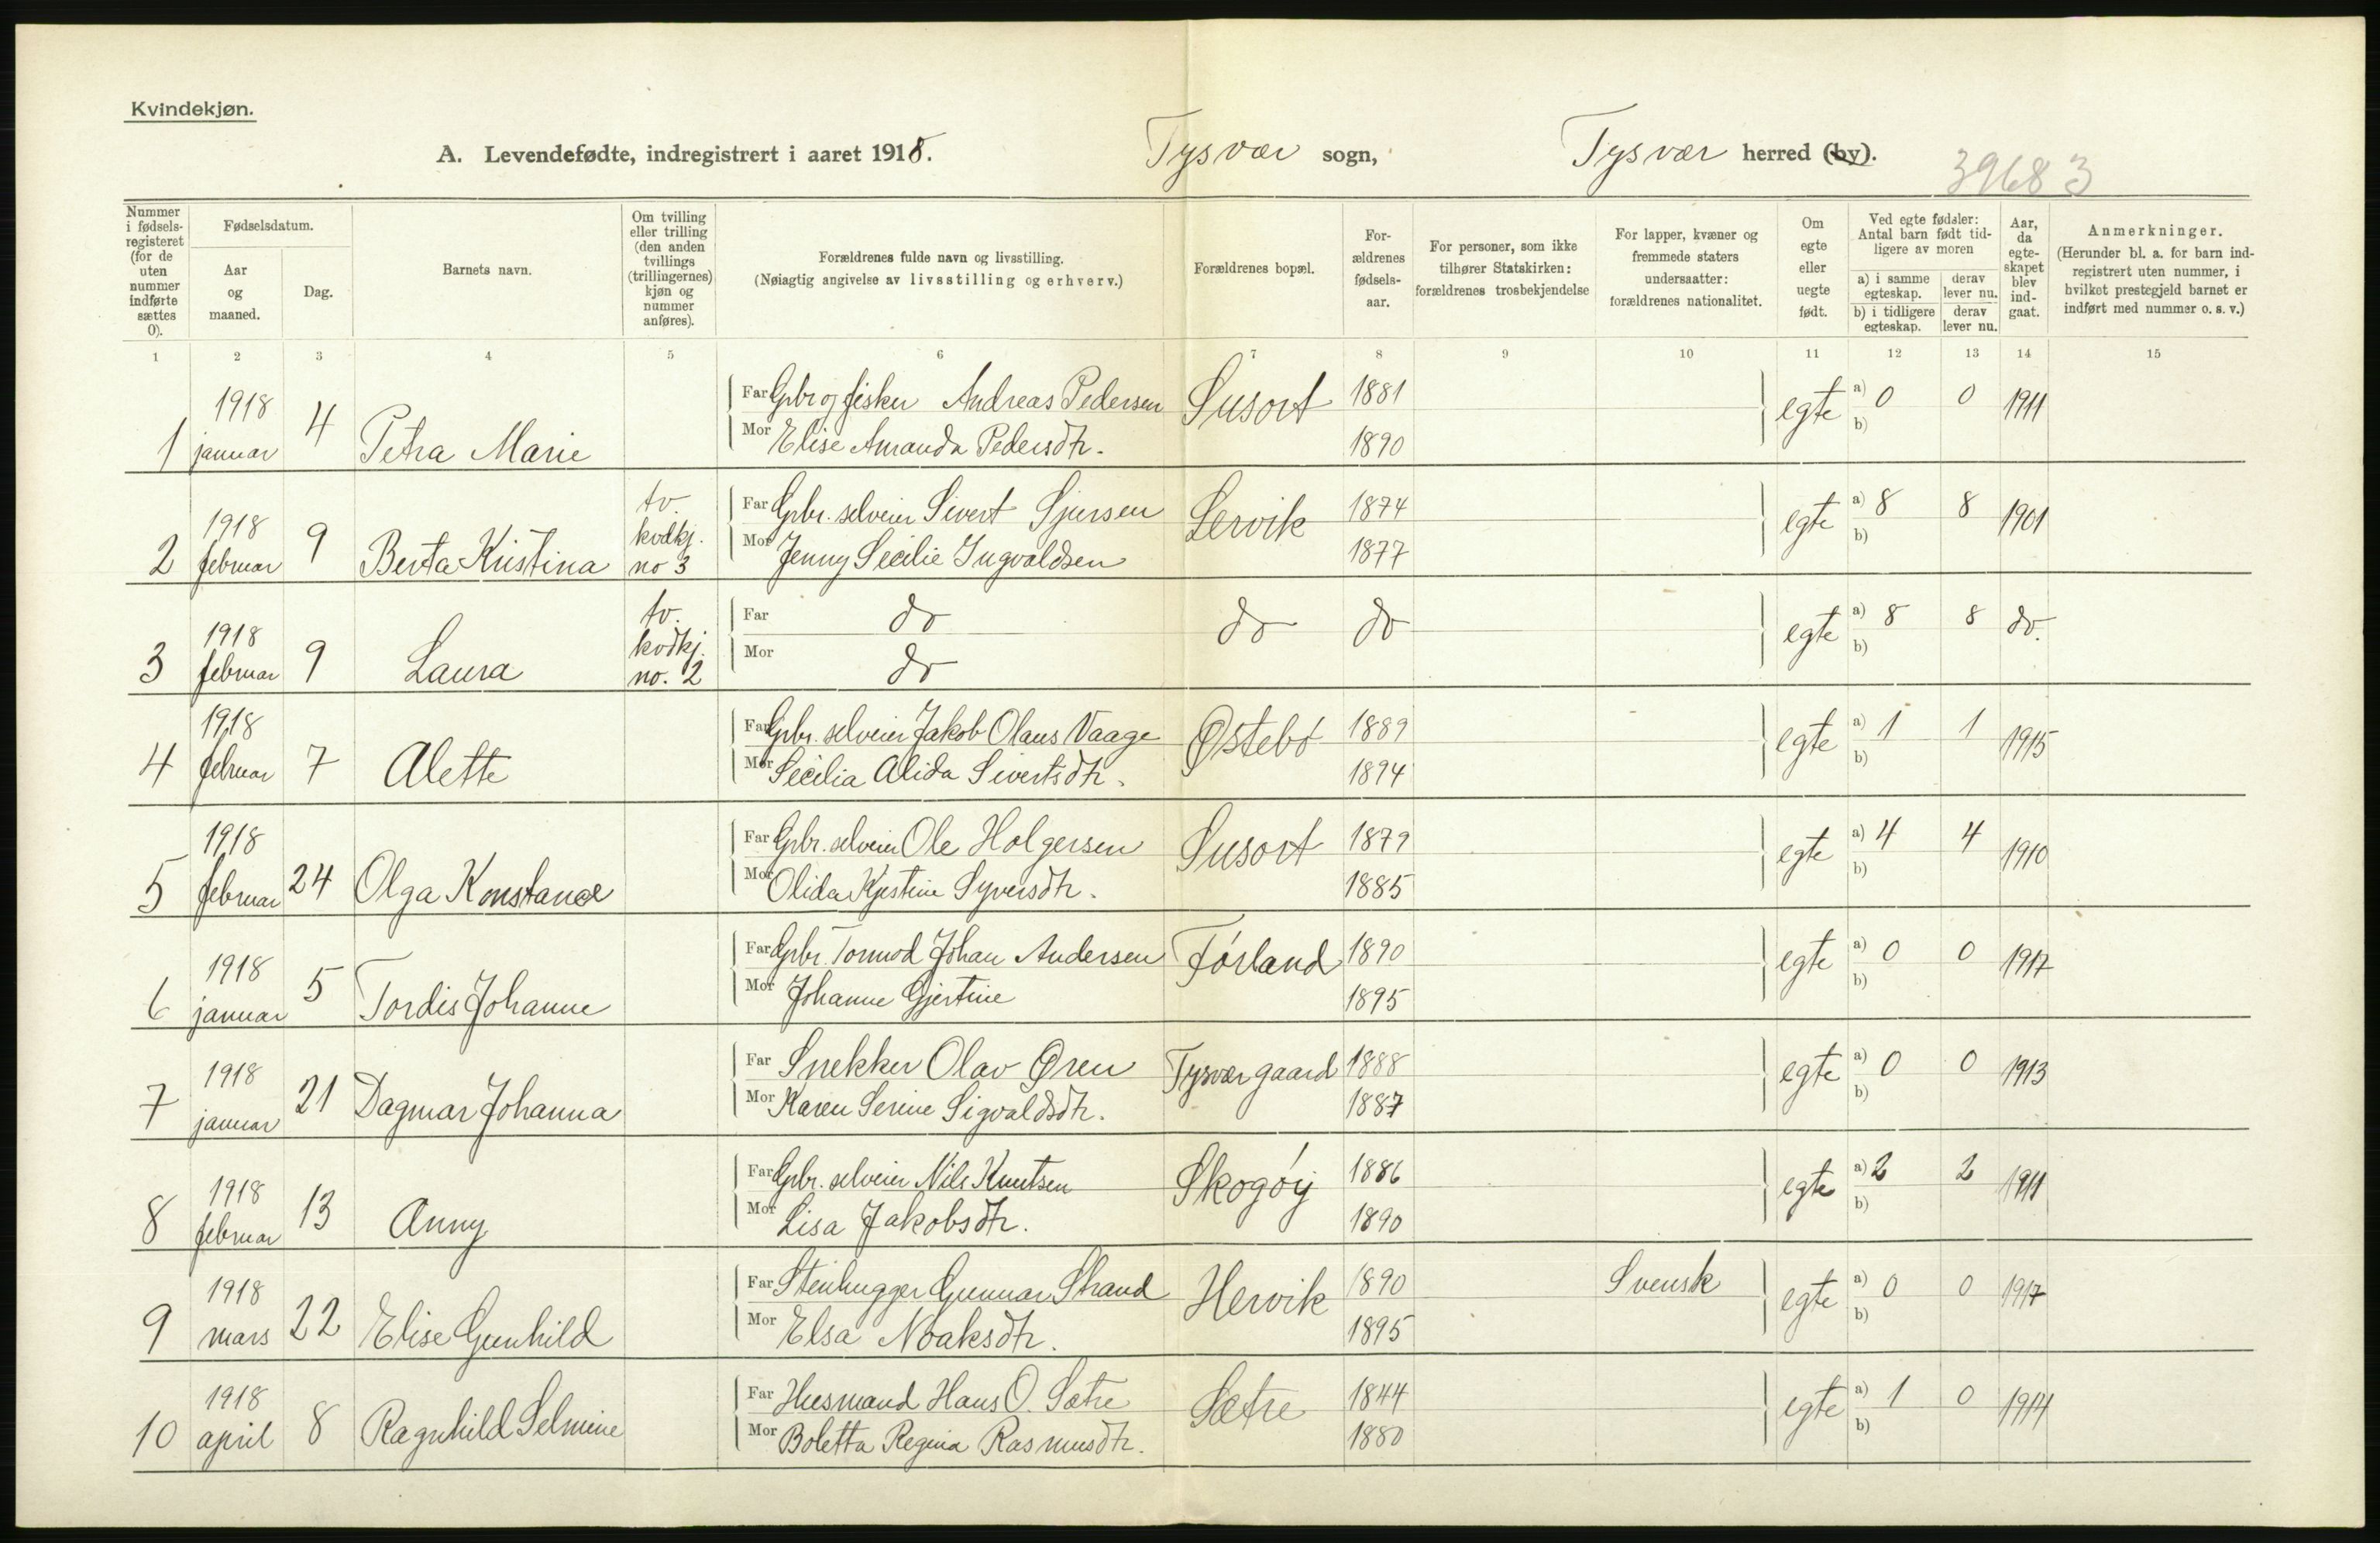 Kvindekjøn.
A. Levendefødte, indregistrert i aaret 1918. Tysvær sogn, Tysvær herred (by).
39683
Nummer i fødsels-registeret (for de uten nummer indførte sættes 0).
Fødselsdatum.
Aar og maaned.
Dag.
Barnets navn.
Om tvilling eller trilling (den anden tvillings (trillingernes) kjøn og nummer anføres).
Forældrenes fulde navn og livsstilling.
(Nøiagtig angivelse av livsstilling og erhverv.)
Forældrenes bopæl.
For-ældrenes fødsels-aar.
For personer, som ikke tilhører Statskirken: forældrenes trosbekjendelse
For lapper, kvæner og fremmede staters undersaatter: forældrenes nationalitet.
Om egte eller uegte født.
Ved egte fødsler: Antal barn født tid-ligere av moren
a) i samme egteskap.
derav lever nu.
b) i tidligere egteskap.
derav lever nu.
Aar, da egte-skapet blev ind-gaat.
Anmerkninger.
(Herunder bl. a. for barn ind-registrert uten nummer, i hvilket prestegjeld barnet er indført med nummer o. s. v.)
1 2 3 4 5 6 7 8 9 10 11 12 13 14 15
1 1918 januar 4 Petra Marie Far Gbr og fisker Andreas Pedersen Susort 1881 egte a) 0 0 1911
Mor Elise Amanda Pedersdtr. 1890 b)
2 1918 februar 9 Berta Kristina tv. kvdkj. no 3 Far Gbr. selveier Sivert Sjursen Lervik 1874 egte a) 8 8 1901
Mor Jenny Secilie Ingvaldsen 1877 b)
3 1918 februar 9 Laura tv. kvdkj. no. 2 Far do do do egte a) 8 8 do.
Mor do b)
4 1918 februar 7 Alette Far Gbr. selveier Jakob Olaus Vaage Østebø 1889 egte a) 1 1 1915
Mor Secilia Alida Sivertsdtr. 1894 b)
5 1918 februar 24 Olga Konstance Far Gbr. selveier Ole Holgersen Susort 1879 egte a) 4 4 1910
Mor Olida Kjestine Syversdtr. 1885 b)
6 1918 januar 5 Tordis Johanne Far Gbr. Tormod Johan Andersen Førland 1890 egte a) 0 0 1917
Mor Johanne Gjertine 1895 b)
7 1918 januar 21 Dagmar Johanna Far Snekker Olav Øren Tysvær gaard 1888 egte a) 0 0 1913
Mor Karen Serine Sigvaldsdtr. 1887 b)
8 1918 februar 13 Anny Far Gbr. selveier Nils Knutsen Skogøy 1886 egte a) 2 2 1911
Mor Lisa Jakobsdtr. 1890 b)
9 1918 mars 22 Elise Gunhild Far Stenhugger Gunnar Strand Hervik 1890 Svensk egte a) 0 0 1917
Mor Elsa Noaksdtr. 1895 b)
10 1918 april 8 Ragnhild Selmine Far Husmand Hans O. Sætre Sætre 1844 egte a) 1 0 1914
Mor Boletta Regina Rasmusdtr. 1880 b)